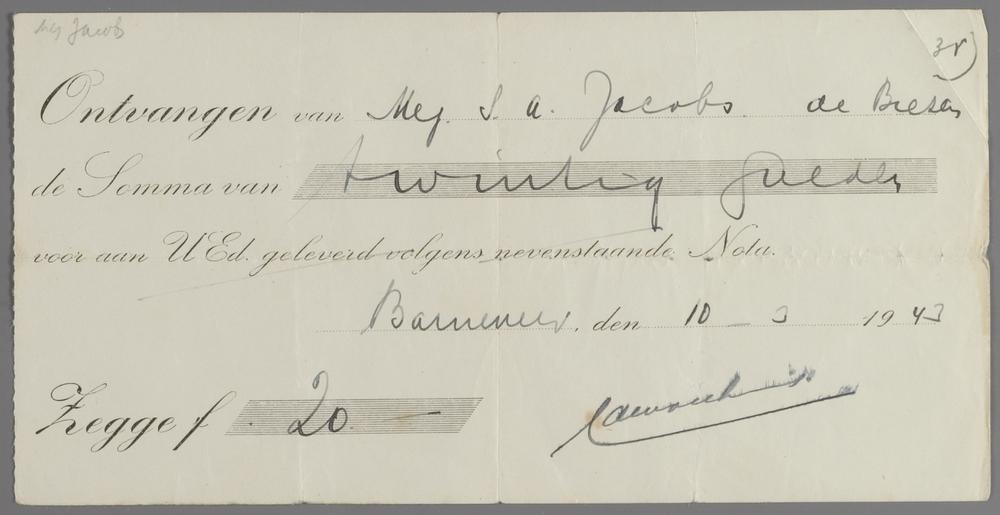 Mej Jacobs
Ontvangen van Mej. S. A. Jacobs. de Biezen
de Somma van twintig Gulden
voor aan UEd. geleverd volgens nevenstaande Nota.
Barneveld, den 10 - 3 1943
Zegge f 20 -